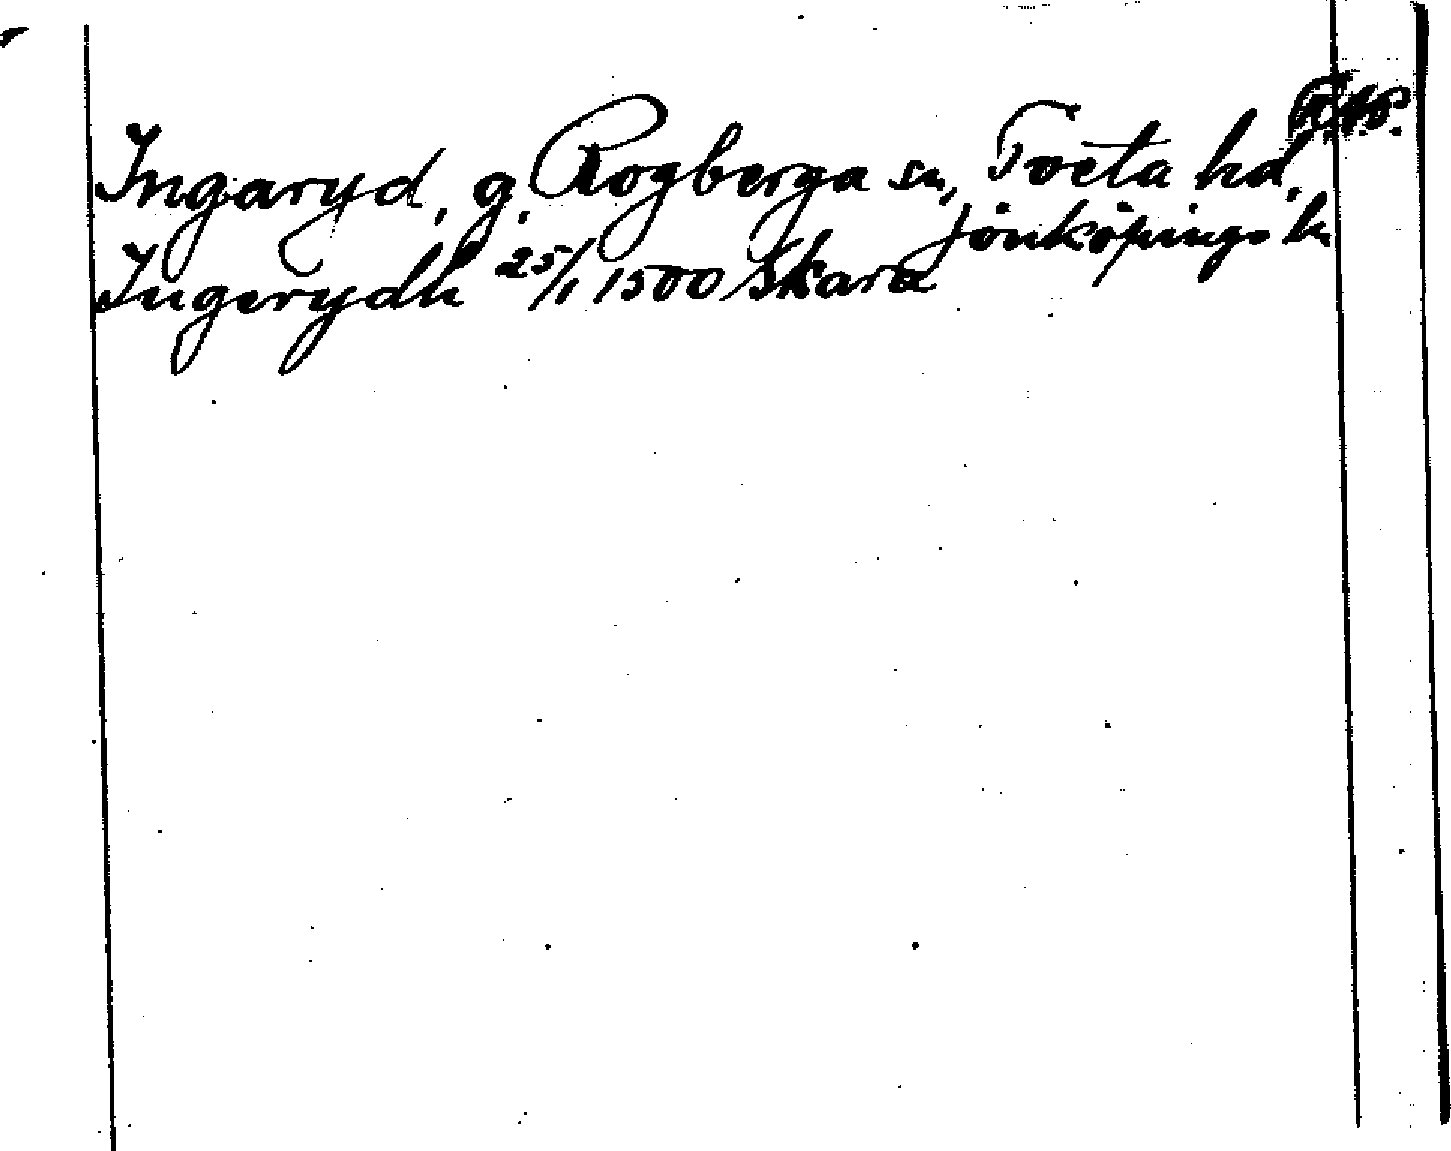 Ingaryd, g. Rogberga sn, Tveta hd,
Jönköpings ln
Ingerydh 25/1 1500 Skara